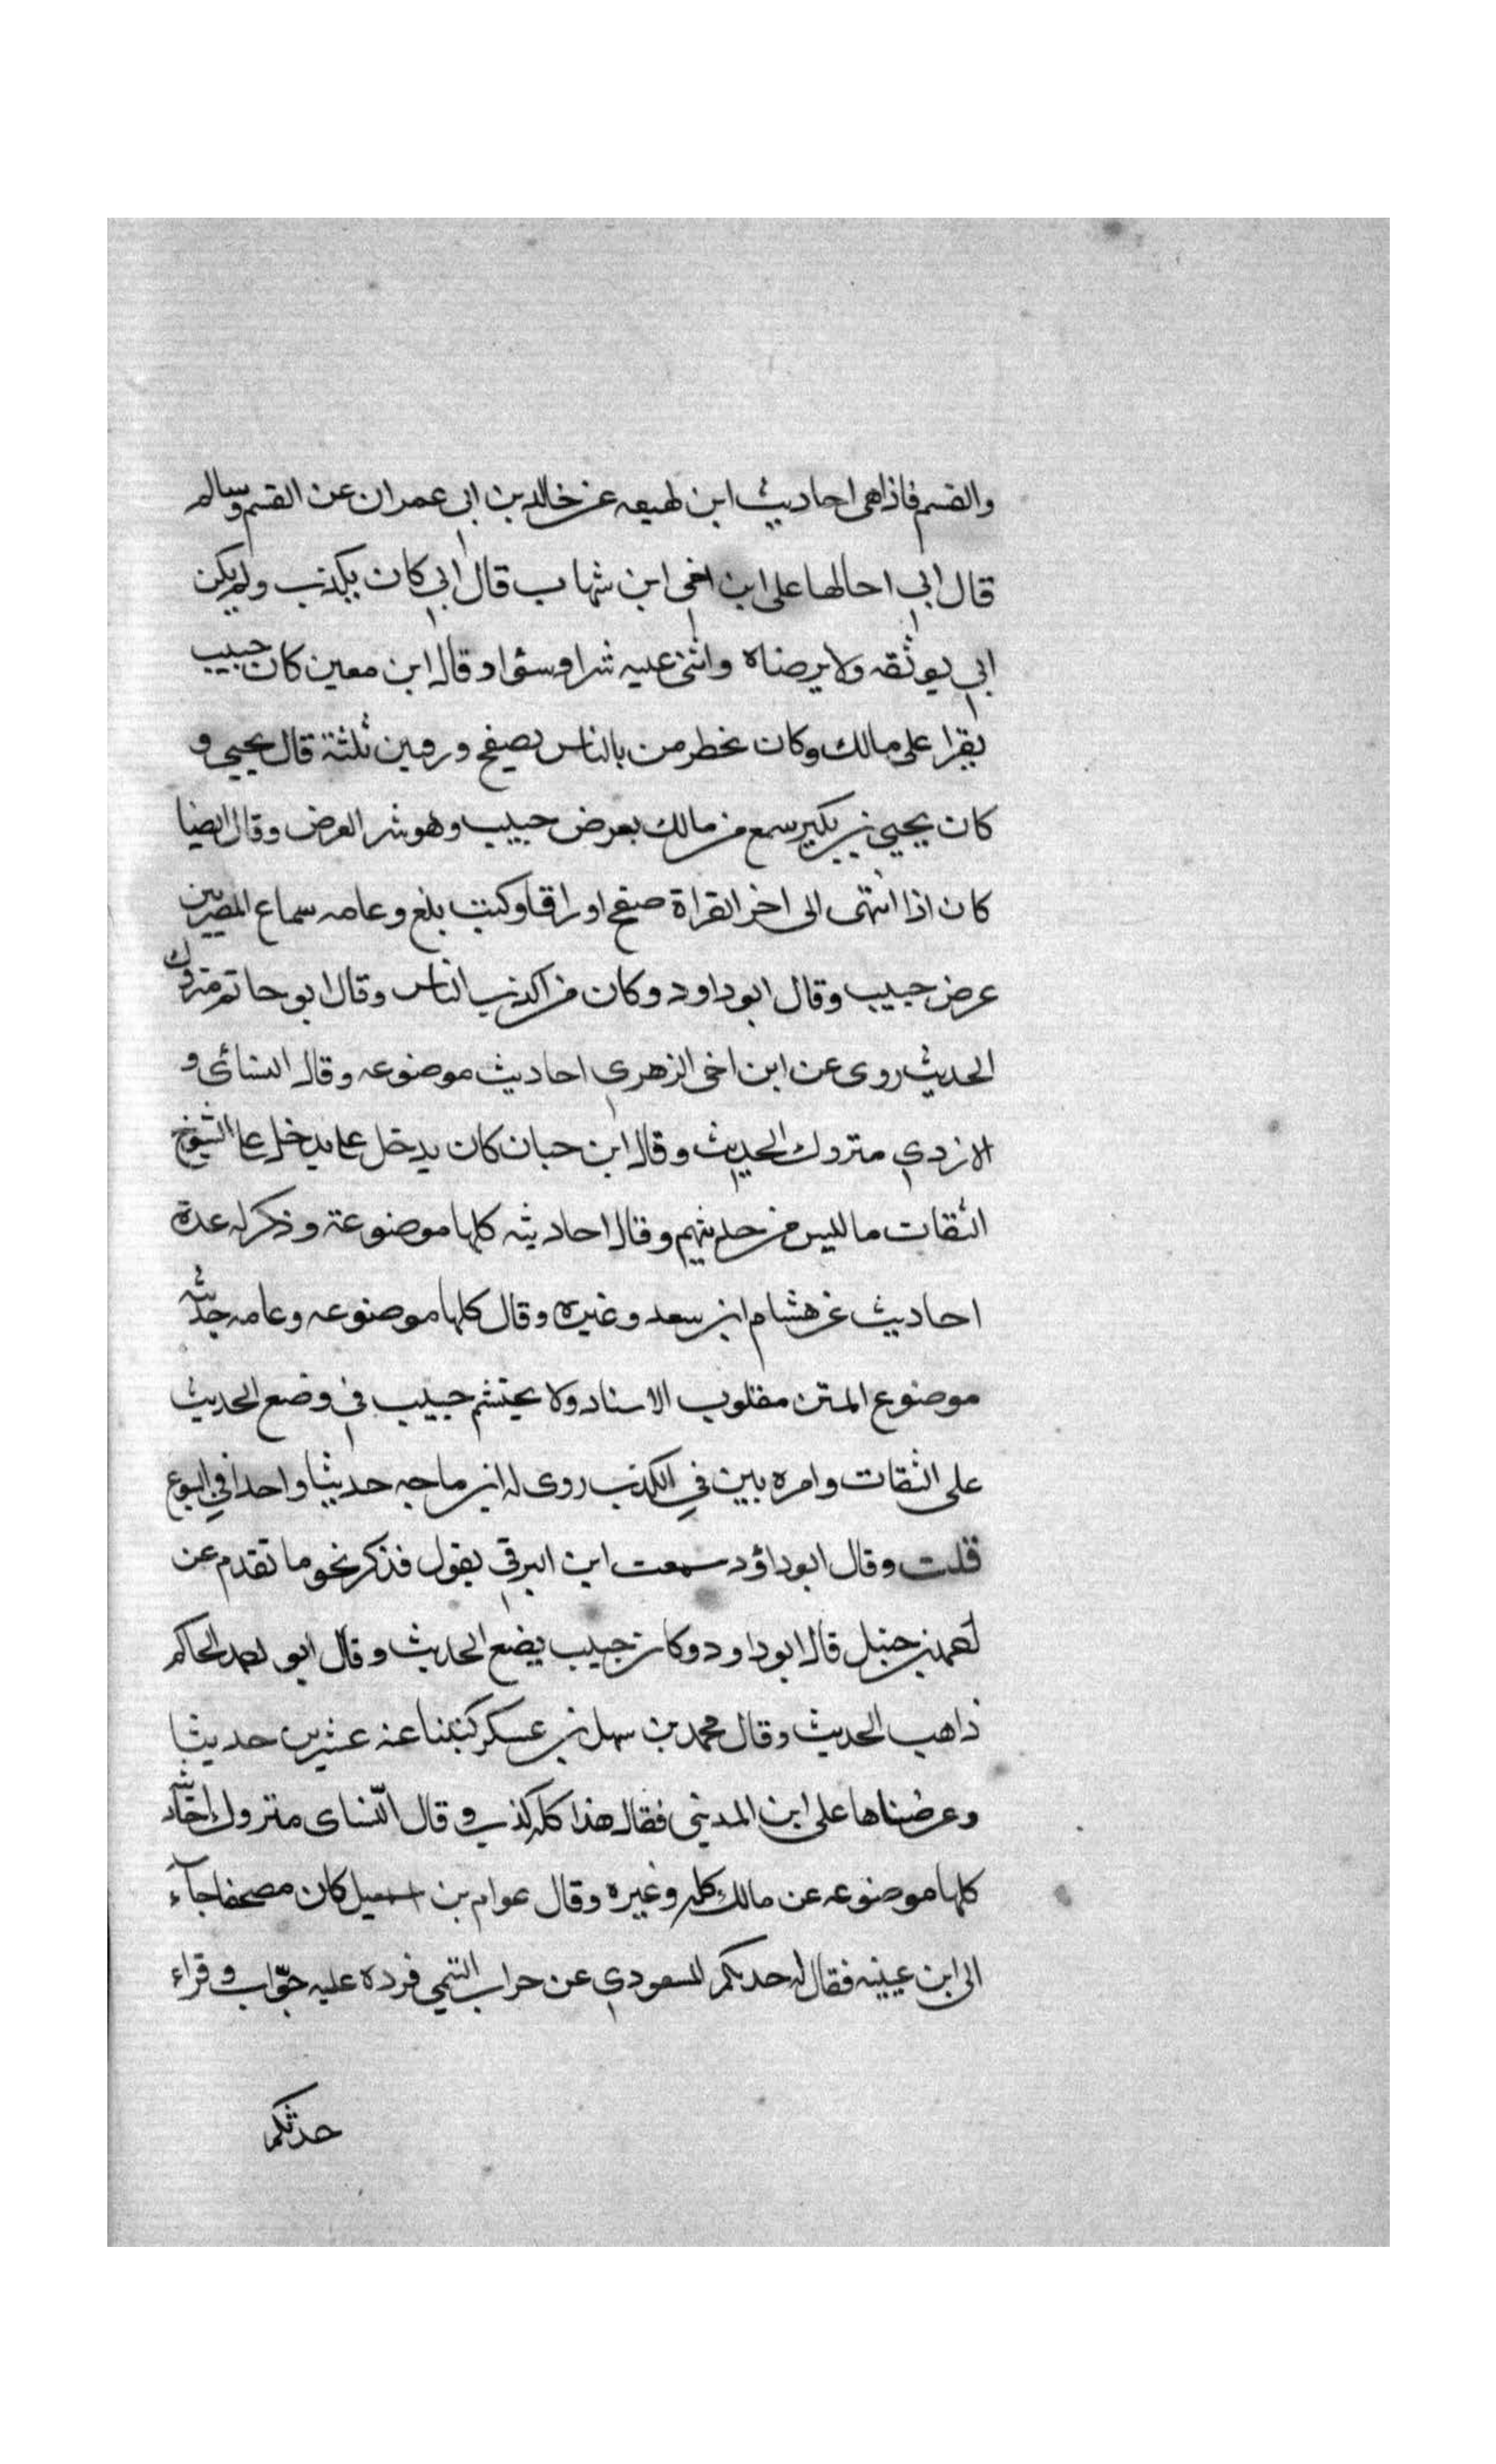 والقسم فاذا هى احاديث ابن لهيعه عن خالد بن ابى عمران عن القسم وسالم
قال ابي احالها على ابن اخى ابن شهاب قال ابي كان يكذب ولم يكن
ابي يوثقه ولا يرضاه واثنى عليه شرا وسؤا وقال ابن معين كان حبيب
يقرا على مالك وكان يخطرمن بالناس يصفح ورقين ثلثة قال يحيي و
كان يحيي بن بكير سمع من مالك بعرض حبيب وهو شر العرض وقال ايضا
كان اذا انتهى الى اخر القراة صفح اوراقا وكتب بلغ وعامه سماع المصريين
عرض حبيب وقال ابو داود وكان من اكذب الناس وقال ابو حاتم متروك
الحديث روى عن ابن اخى الزهري احاديث موضوعه وقال النسائى و
الازدي متروك الحديث وقال ابن حبان كان يدخل عا يدخل عا الشيوخ
الثقات ما ليس من حديثهم وقال احاديثه كلها موضوعة وذكر له عدة
احاديث عن هشام ابن سعد وغيره وقال كلها موضوعه وعامه حديثه
موضوع المتن مقلوب الاسناد ولا يحتشم حبيب في وضع الحديث
على الثقات وامره بين في الكذب روى له ابن ماجه حديثا واحدا في البيوع
قلت وقال ابو داؤد سمعت ابن البرقي يقول فذكر نحو ما تقدم عن
احمد بن حنبل قال ابو داود وكان حبيب يضع الحديث وقال ابو احمد الحاكم
ذاهب الحديث وقال محمد بن سهل بن عسكر كتبنا عنه عشرين حديثا
وعرضناها على ابن المدينى فقال هذا كله كذب وقال النساى متروك احاديثه
كلها موضوعه عن مالك كله وغيره وقال عوام بن اسمعيل كان مصحفا جاء
الى ابن عيينه فقال له حدثكم المسعودي عن حراب التيمي فرده عليه جواب وقراء
حدثكم